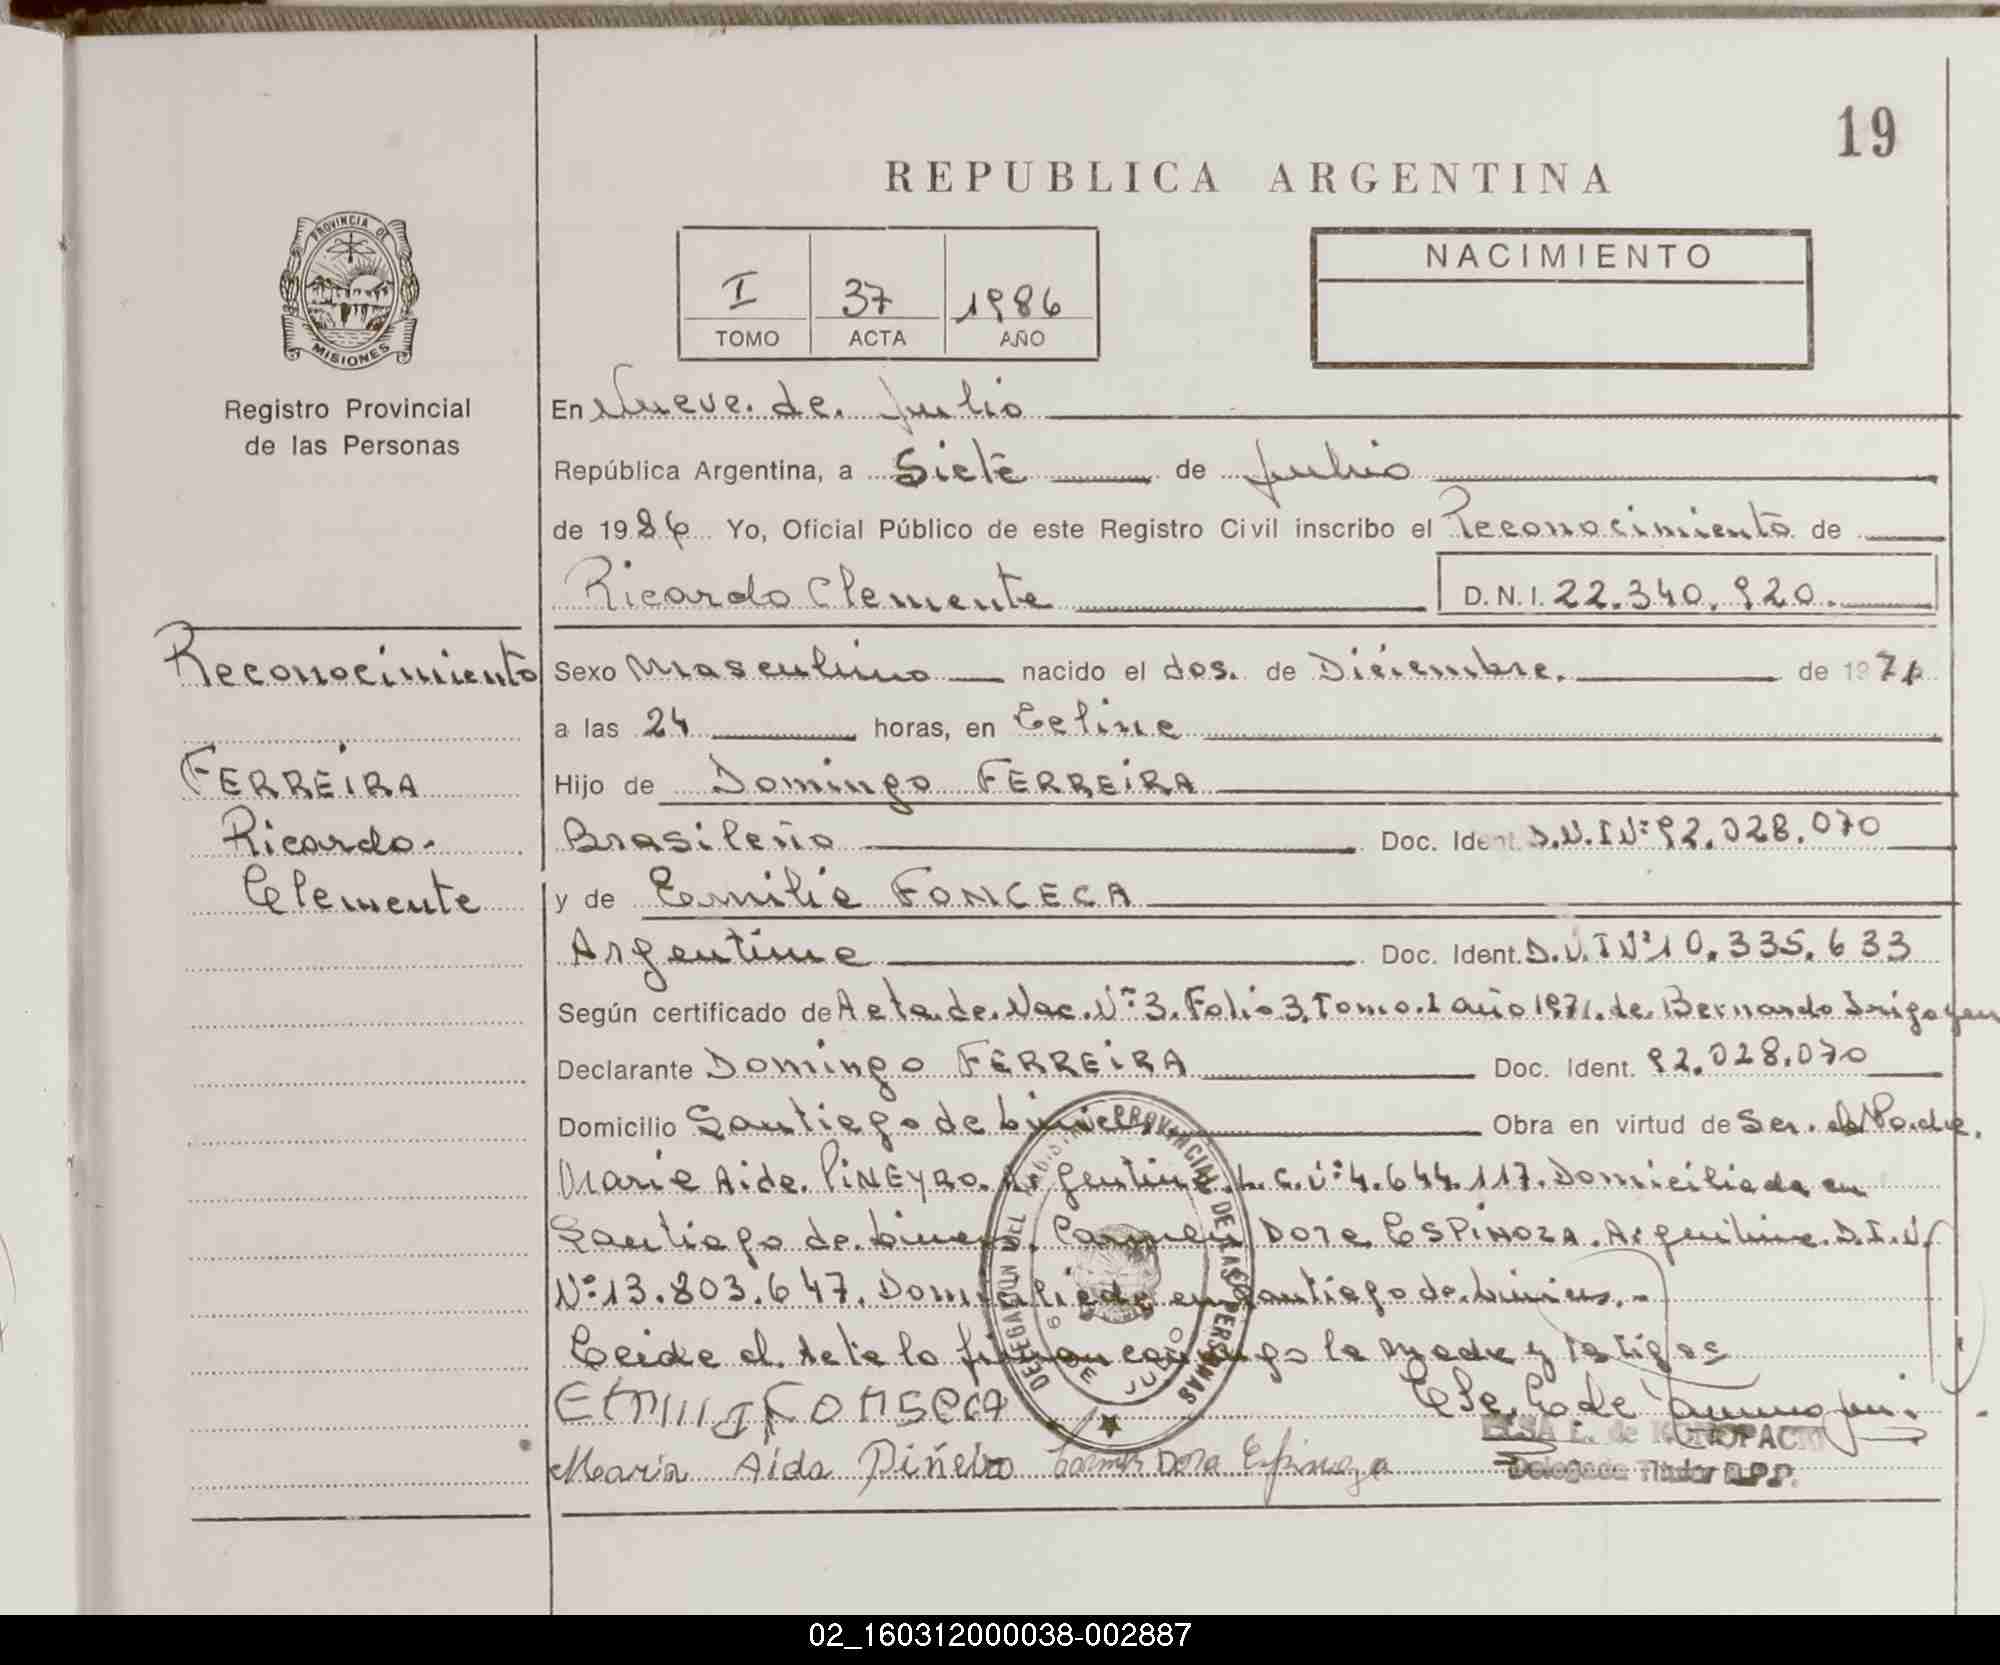 19
REPUBLICA ARGENTINA
PROVINCIA DE
MISIONES
Registro Provincial
de las Personas
I 37 1986
TOMO ACTA AÑO
NACIMIENTO
En Nueve de Julio
República Argentina, a Siete de Julio
de 1986 Yo, Oficial Público de este Registro Civil inscribo el Reconocimiento de
Ricardo Clemente D.N.I. 22.340.920.
Reconocimiento
FERREIRA
Ricardo
Clemente
Sexo Masculino nacido el dos de Diciembre. de 1971
a las 24 horas, en
Hijo de Domingo FERREIRA
Brasileño Doc. Ident. D.N.I Nº 92.028.070
y de Emilia FONCECA
Argentina Doc. Ident. D.N.I Nº 10.335.633
Según certificado de Acta de Nac. Nº 3. Folio 3. Tomo I año 1971. de Bernardo Irigoyen
Declarante Domingo FERREIRA Doc. Ident. 92.028.070
Domicilio Santiago de Liniers Obra en virtud de Ser el Padre.
Maria Aida PIÑEYRO. Argentina. L.C. Nº 4.644.117. Domiciliada en
Santiago de Liniers. Carmen Dora ESPINOZA. Argentina. D.I.N.
Nº 13.803.647. Domiciliada en Santiago de Liniers.-
Leida el Acta lo firman conmigo la madre y testigos
DELEGACION DEL REGISTRO PROVINCIAL DE LAS PERSONAS
9 DE JULIO
EMILIA FONSECA
Maria Aida Piñeiro Carmen Dora Espinoza
ELSA L. de KONOPACKI
Delegada Titular R.P.P.
02_160312000038-002887